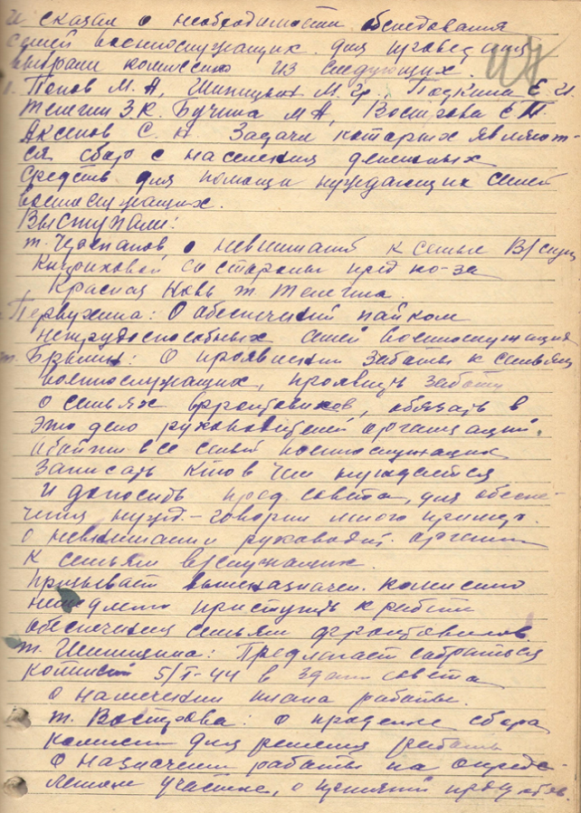 и сказал о необходимости обследования
семей военнослужащих. для проведения
выбрали комиссию из следующих.
1. Попов М. А, М. Гр. Е. И.
Телегин З К. Бучина М А, Вострова Е П.
Аксенов С. Н Задачи которых являют-
ся сбор с населения денежных
средств для помощи нуждающих семей
военнослужащих.
Выступали:
т. Черепанов о невнимании к семье В/служ
со стороны пред ко-за
Красная Новь т Телегина
Первухина: О обеспечении пайком
нетрудоспособных семей военнослужащих
т. О проявлении заботы к семьям
военнослужащих, проявить заботу
о семьях фронтовиков, обязать в
это дело руководителей организаций.
обойти все семьи военнослужащих
записать кто в чем нуждается
и доносить пред совета, для обеспе-
чения нужд - говорит много пример.
о невнимании руководит. организ
к семьям в/служащих.
Призывает вышеназначен. комиссию
немедлено приступить к работе
обеспечения семьям фронтовиков.
т. Предлагает собраться
комисией 5/I-44 в здан совета
о намечении плана работы.
т. Вострова: о проделке сбора
комисии для решения работы
о назначении работы на опреде-
леном участке, о